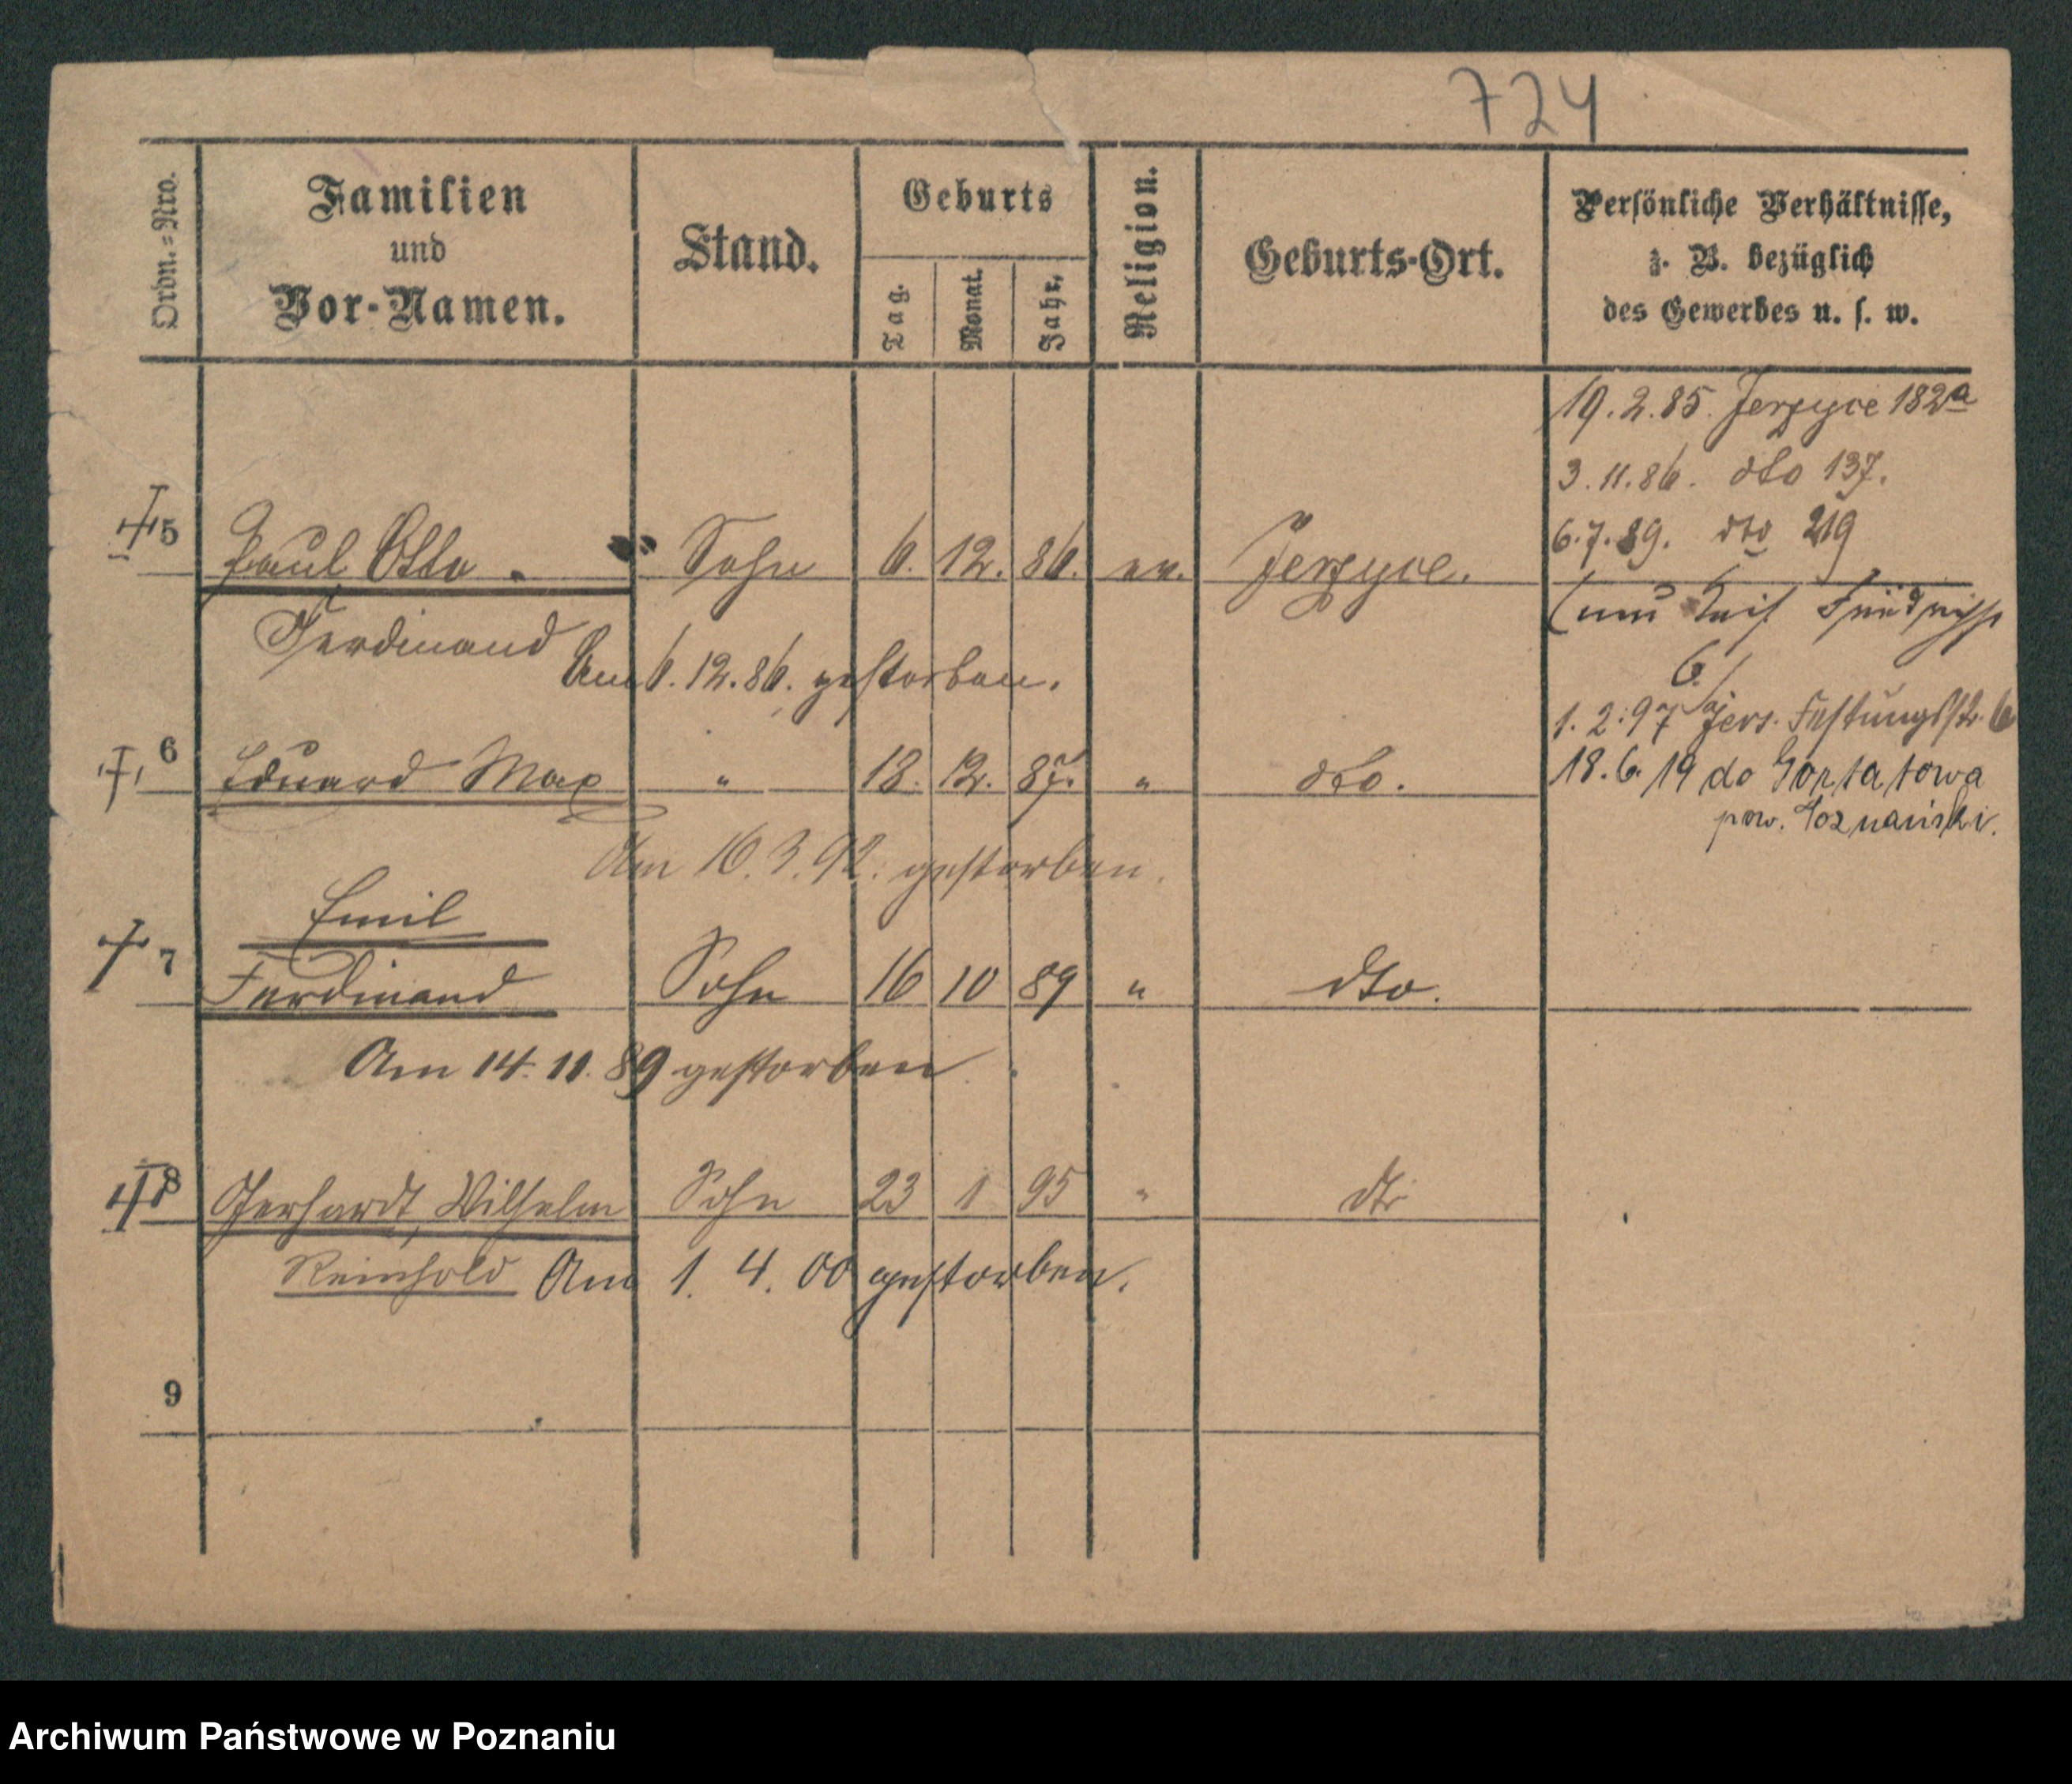 724
Ordn.=Nro.
Familien
und
Vor-Namen.
Stand.
Geburts
Tag.
Monat.
Jahr.
Religion.
Geburts-Ort.
Persönliche Verhältnisse,
z. B. bezüglich
des Gewerbes u. s. w.
19.2.85. Jerzyce 182a
3.11.86. dto 137.
6.7.89. dto 219
5 Paul Otto Sohn 6. 12. 86. ev. Jerzyce.
Ferdinand
Am 6.12.86. gestorben.
6.
1.2.97 Jers. Festungsstr. 6
18.6.19 do Gortatowa
pow. Poznański.
6 Eduard Max " 18. 12. 87. " dto.
Am 16.3.92. gestorben.
Emil
7 Ferdinand Sohn 16 10 89 " dto.
Am 14.11.89 gestorben
8 Gerhardt, Wilhelm Sohn 23 1 95 " dto
Reinhold Am 1. 4. 00 gestorben.
9
Archiwum Państwowe w Poznaniu